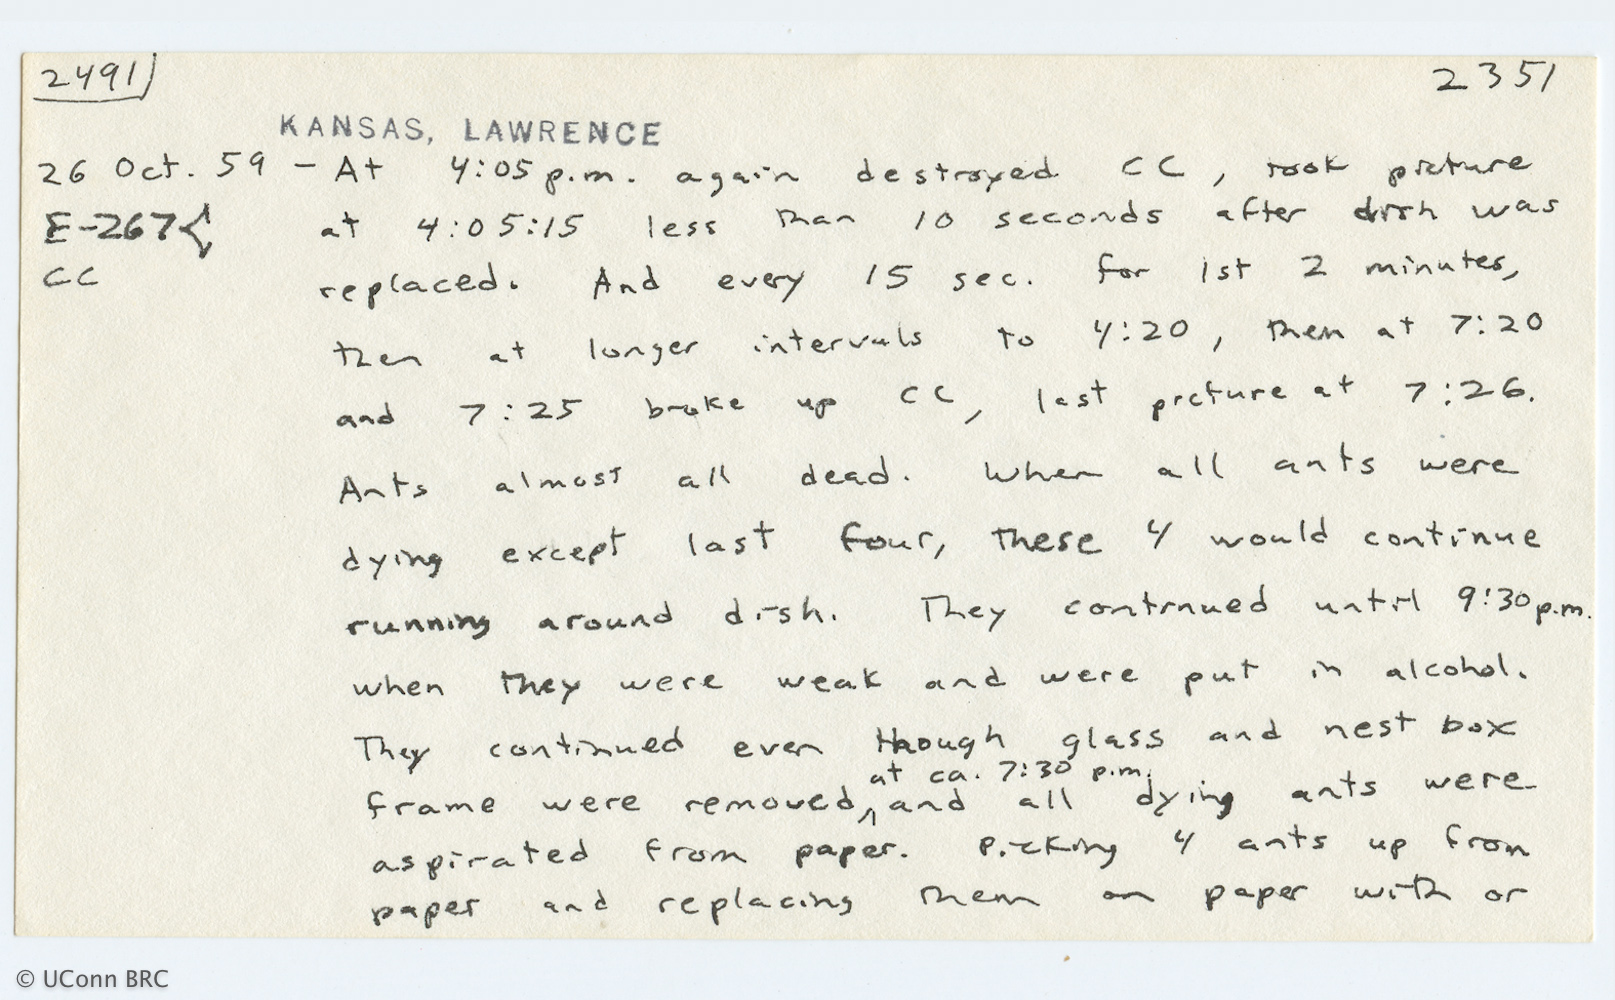 2491
2351
KANSAS, LAWRENCE
26 Oct. 59 - At 4:05 p.m. again destroyed CC, took picture
E-267 at 4:05:15 less than 10 seconds after dish was
CC replaced. And every 15 sec. for 1st 2 minutes,
then at longer intervals to 4:20, then at 7:20
and 7:25 broke up CC, last picture at 7:26.
Ants almost all dead. When all ants were
dying except last four, these 4 would continue
running around dish. They continued until 9:30 p.m.
when they were weak and were put in alcohol.
They continued even though glass and nest box
at ca. 7:30 p.m.
frame were removed, ^ and all dying ants were
aspirated from paper. Picking 4 ants up from
paper and replacing them on paper with or
© UConn BRC